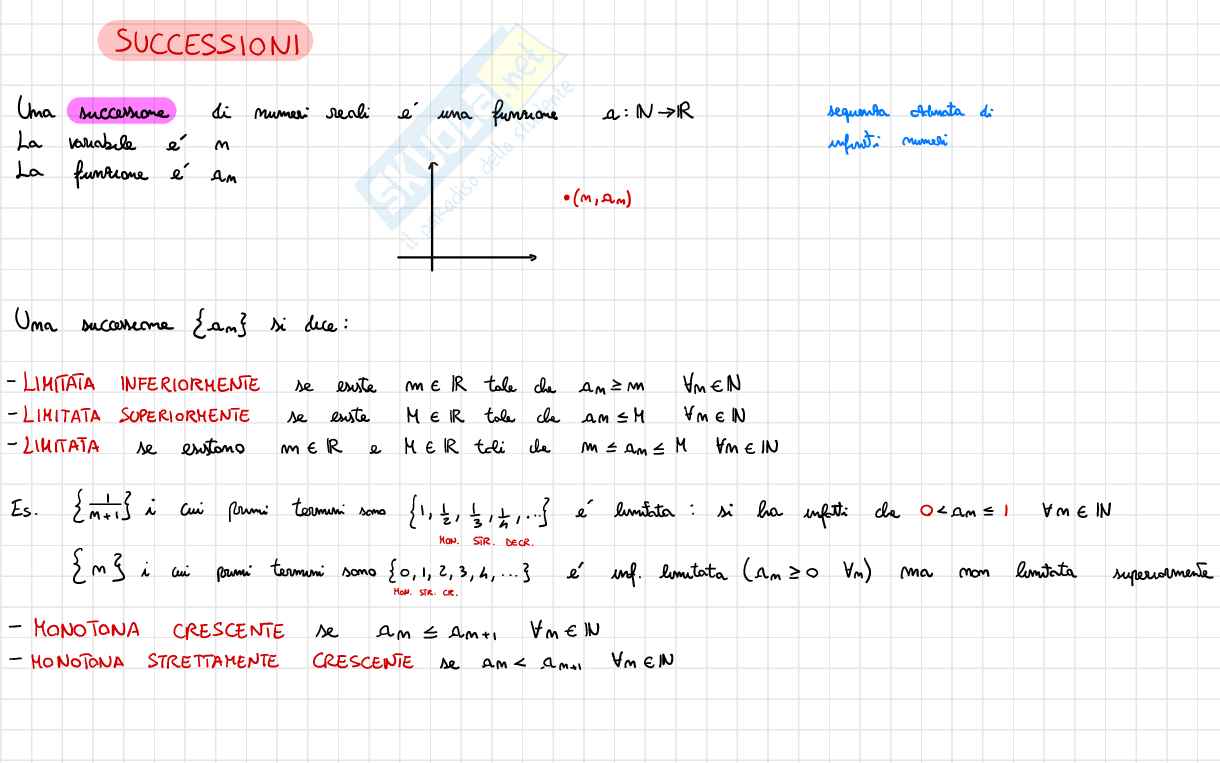 SUCCESSIONI
Una successione di numeri reali é una funzione a: ℕ→ℝ
sequenza ordinata di
infiniti numeri
La variabile é n
La funzione é aₙ
(n, aₙ)
Una successione {aₙ} si dice:
- LIMITATA INFERIORMENTE se esiste m ∈ ℝ tale che aₙ ≥ m ∀n ∈ ℕ
- LIMITATA SUPERIORMENTE se esiste M ∈ ℝ tale che aₙ ≤ M ∀n ∈ ℕ
- LIMITATA se esistono m ∈ ℝ e M ∈ ℝ tali che m ≤ aₙ ≤ M ∀n ∈ ℕ
Es. {1/(n+1)} i cui primi termini sono {1, 1/2, 1/3, 1/4, ...} é limitata: si ha infatti che 0 < aₙ ≤ 1 ∀n ∈ ℕ
MON. STR. DECR.
{n} i cui primi termini sono {0, 1, 2, 3, 4, ...} é inf. limitata (aₙ ≥ 0 ∀n) ma non limitata superiormente
MON. STR. CR.
- MONOTONA CRESCENTE se aₙ ≤ aₙ₊₁ ∀n ∈ ℕ
- MONOTONA STRETTAMENTE CRESCENTE se aₙ < aₙ₊₁ ∀n ∈ ℕ
SKUOLA.net
il paradiso dello studente